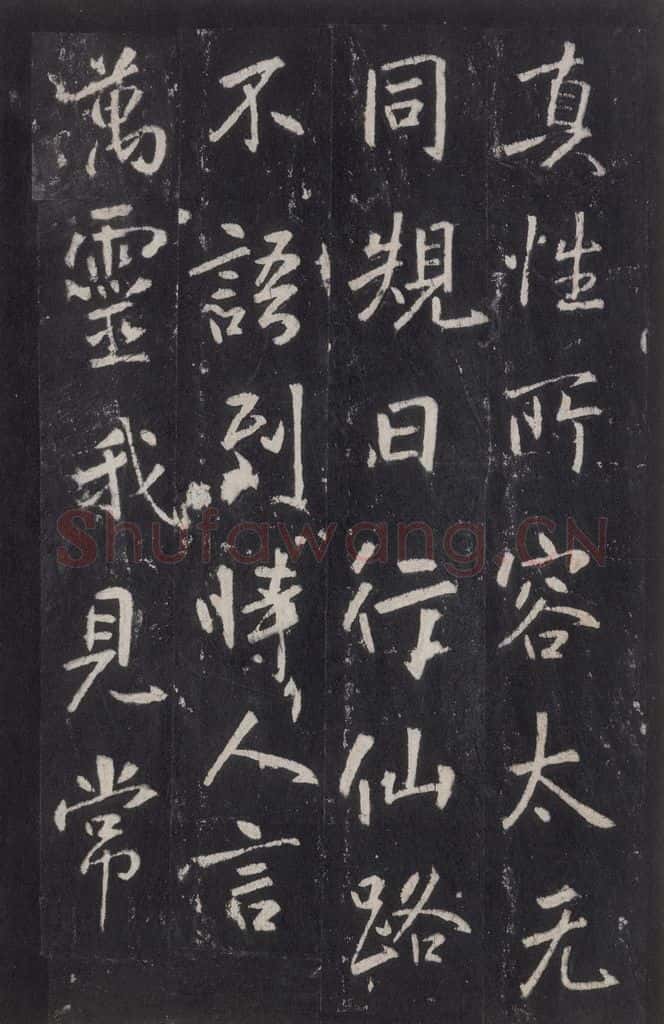 真性所容太无
同規日行仙路
不語到時人言
萬靈我見常
Shufawang.CN